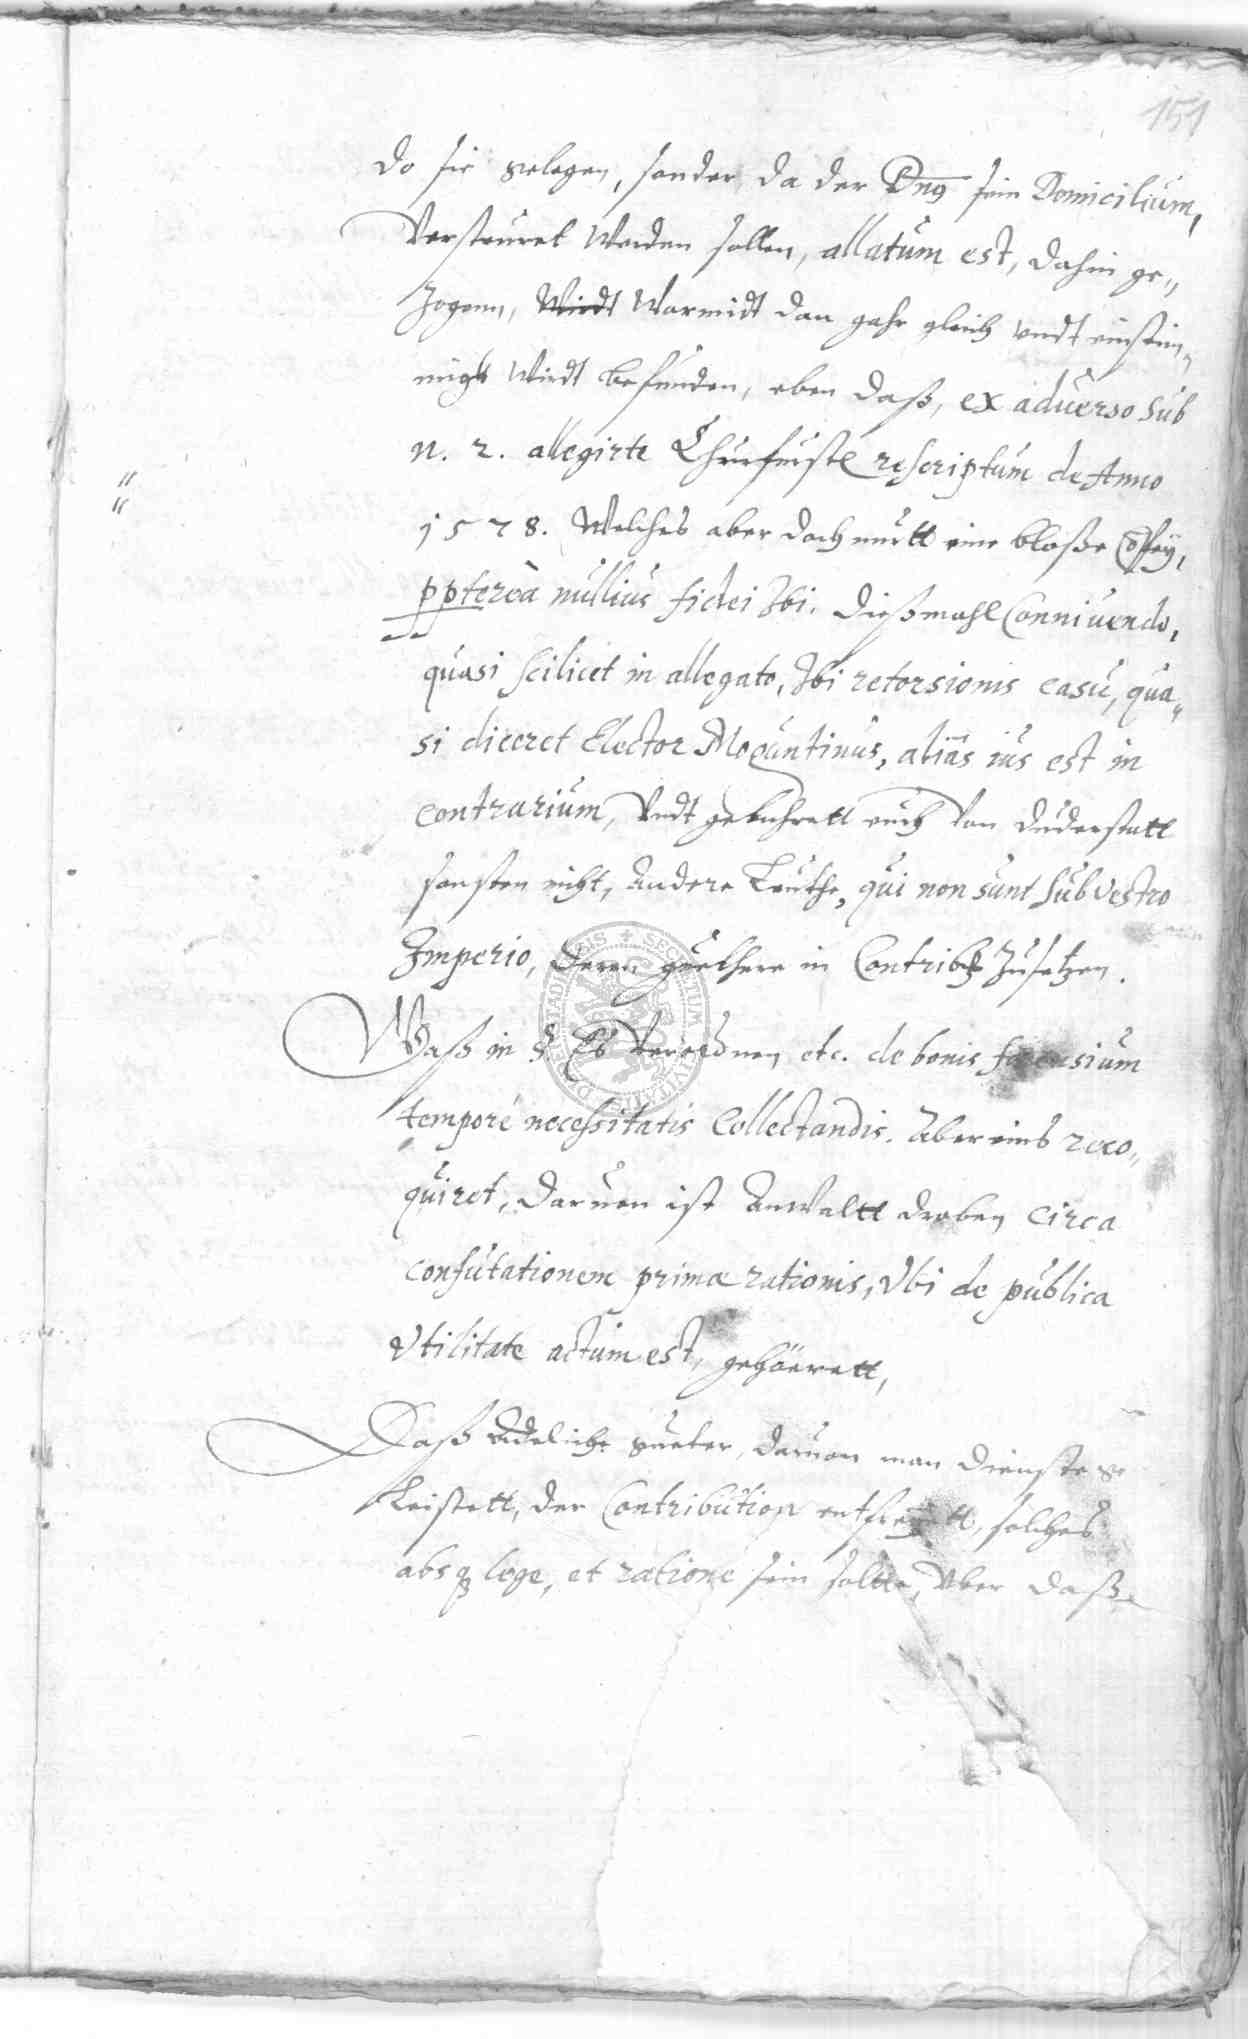 151
do sie gelegen, sonder da der Dn9 sein Domicilium,
Versteuret Werden sollen, allatum est, dahin ge„
Zogenn, Wirdt Warmidt dan gahr gleich undt einstim„
migk Wirdt befunden, eben daß, ex aduerso sub
n. 2. allegirte Churfurstl rescriptum de Anno
1578. Welches aber doch nurtt eine bloße Copey,
ppterea nullius fidei Ibi. dießmahl Conniuendo,
quasi scilicet in allegato, Ibi retorsionis casu, qua„
si diceret Elector Moguntinus, alias ius est in
contrarium, Vndt gebuhrett euch Von Duderstatt
sonsten nicht, Andere Leuthe, qui non sunt sub vestro
Imperio, deren guethere in Contrib. Zusetzen.
Waß in § Es Verordnen etc. de bonis forensium
tempore necessitatis Collectandis. Aber eins reco„
quiret, daruon ist Anwaltt droben circa
confutationem primae rationis, Vbi de publica
Vtilitate actum est, gehöerett,
Daß Adeliche gueter, daruon man dienste ge
Leistett, der Contribution entfreyett, solches
absq lege, et ratione sein soltte, Vber daß